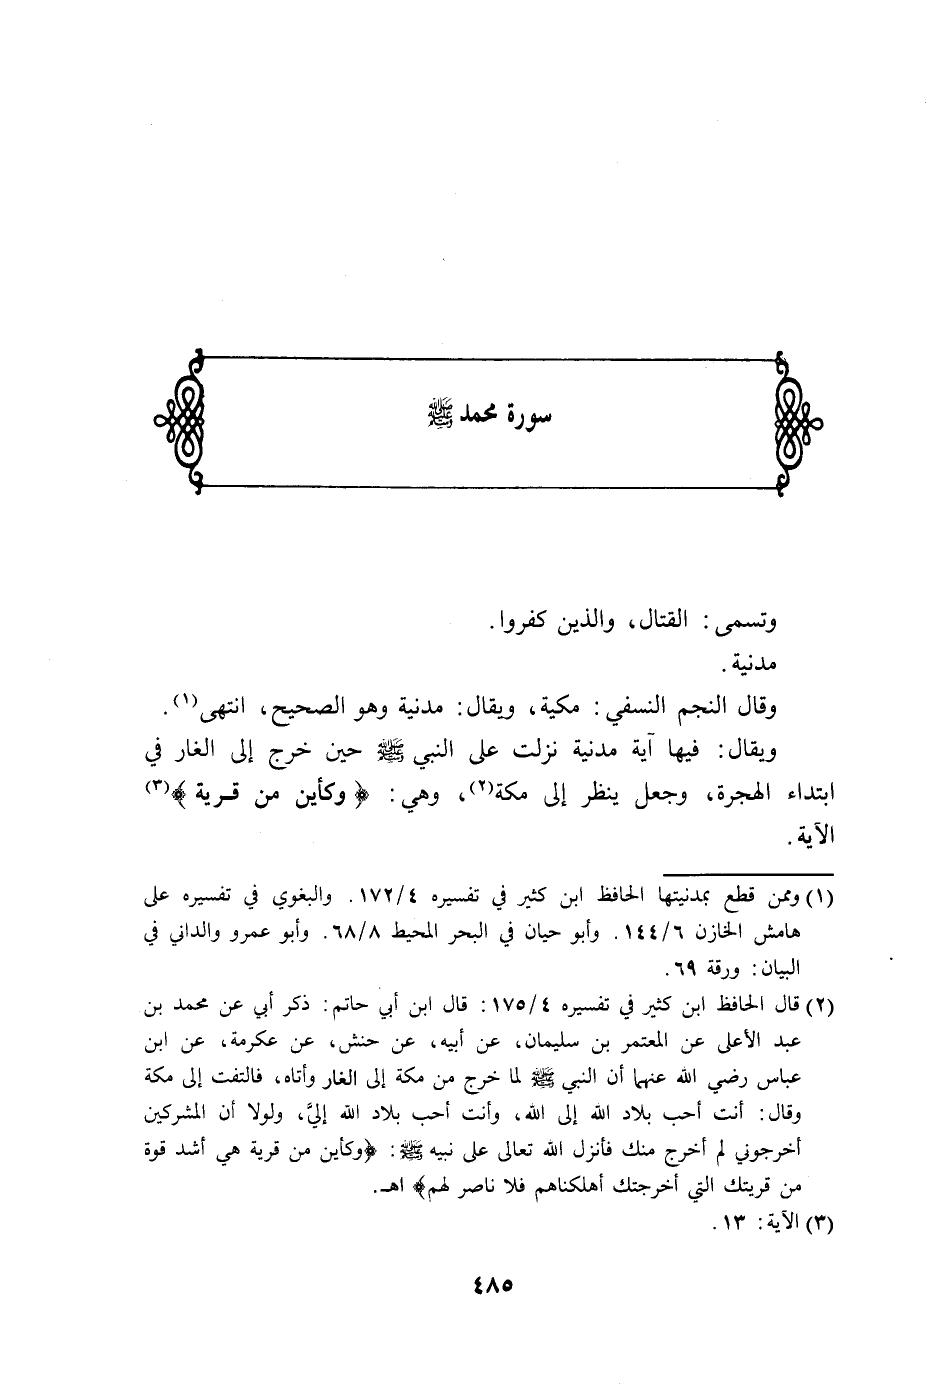 سورة محمد ﷺ
وتسمى: القتال، والذين كفروا.
مدنية.
وقال النجم النسفي: مكية، ويقال: مدنية وهو الصحيح، انتهى(١).
ويقال: فيها آية مدنية نزلت على النبي ﷺ حين خرج إلى الغار في
ابتداء الهجرة، وجعل ينظر إلى مكة(٢)، وهي: ﴿ وكأين من قـرية ﴾(٣)
الآية.
(١) وممن قطع بمدنيتها الحافظ ابن كثير في تفسيره ١٧٢/٤. والبغوي في تفسيره على
هامش الخازن ١٤٤/٦. وأبو حيان في البحر المحيط ٦٨/٨. وأبو عمرو والداني في
البيان: ورقة ٦٩.
(٢) قال الحافظ ابن كثير في تفسيره ١٧٥/٤: قال ابن أبي حاتم: ذكر أبي عن محمد بن
عبد الأعلى عن المعتمر بن سليمان، عن أبيه، عن حنش، عن عكرمة، عن ابن
عباس رضي الله عنهما أن النبي ﷺ لما خرج من مكة إلى الغار وأتاه، فالتفت إلى مكة
وقال: أنت أحب بلاد الله إلى الله، وأنت أحب بلاد الله إليَّ، ولولا أن المشركين
أخرجوني لم أخرج منك فأنزل الله تعالى على نبيه ﷺ: ﴿وكأين من قرية هي أشد قوة
من قريتك التي أخرجتك أهلكناهم فلا ناصر لهم﴾ اهـ.
(٣) الآية: ١٣.
٤٨٥